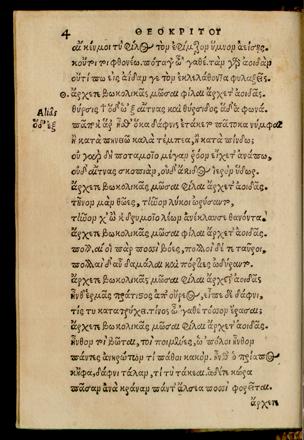 4 ΘΕΟΚΡΙΤΟΥ
αἴ κέν μοι τὺ φίλος τὸν ἐφίμερον ὕμνον ἀείσῃς.
κοὔτι τι φθονέω. πόταγ' ὦ 'γαθέ. τὰν γὰρ ἀοιδὰν
οὔτί πω εἰς ἀΐδαν γε τὸν ἐκλελάθοντα φυλαξεῖς.
Θ. ἄρχετε βωκολικᾶς μῶσαι φίλαι ἄρχετ' ἀοιδᾶς
Aliàs ὅδ' ἐξ
θύρσις ὅδ' ὡ ξ αἴτνας καὶ θύρσιδος ἅδ' ἁ φωνά.
πᾶ ποκ' ἄρ' ἦθ' ὅκα δάφνις ἐτάκετο πᾶ ποκα νύμφαι
ἢ κατὰ πηνειῶ καλὰ τέμπεα, ἢ κατὰ πίνδω;
οὐ γὰρ δὴ ποταμοῖο μέγαν ῥόον εἴχετ' ἀνάπω,
οὐδ' αἴτνας σκοπιὰν, οὐδ' ἄκιδος ἱερὸν ὕδωρ.
ἄρχετε βωκολικᾶς μῶσαι φίλαι ἄρχετ' ἀοιδᾶς.
τῆνον μὰν θῶες, τῆνον λύκοι ὠρύσαντο,
τῆνον χ' ὡ 'κ δρυμοῖο λέων ἀνέκλαυσε θανόντα.
ἄρχετε βωκολικᾶς μῶσαι φίλαι ἄρχετ' ἀοιδᾶς.
πολλαί οἱ πὰρ ποσσὶ βόες, πολλοὶ δέ τε ταῦροι.
πολλαὶ δ' αὖ δαμάλαι καὶ πόρτιες ὠδύραντο.
ἄρχετε βωκολικᾶς μῶσαι φίλαι ἄρχετ' ἀοιδᾶς
ἦνθ' ἑρμᾶς πράτιστος ἀπ' οὔρεος, εἶπε δὲ δάφνι,
τίς τυ κατατρύχει. τίνος ὦ 'γαθὲ τόσσον ἐρᾶσαι;
ἄρχετε βωκολικᾶς μῶσαι φίλαι ἄρχετ' ἀοιδᾶς.
ἦνθον τοὶ βῶται, τοὶ ποιμένες, ὡ πόλοι ἦνθον
πάντες ἀνηρώτων τί πάθοι κακόν. ἦνθ' ὁ πρίηπος
κἤφα, δάφνι τάλαν, τί τὺ τάκεαι. ἁ δέ τι κώρα
πᾶσαν ἀνὰ κράναν πάντ' ἄλσεα ποσσὶ φορεῖται.
ἄρχετε